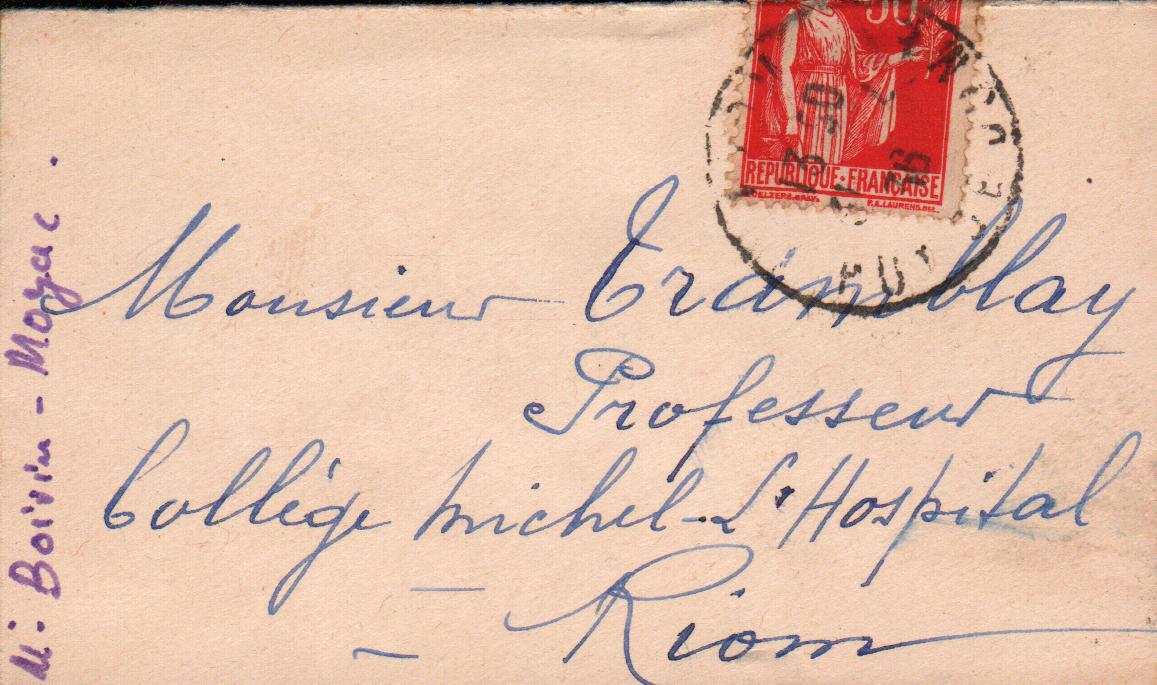 50
REPUBLIQUE·FRANÇAISE
P.A.LAURENS.DEL.
13 50
36
PUY
Monsieur Tramblay
Professeur
Collège michel-L'Hospital
- Riom
-
M. Boivin - Mozac.